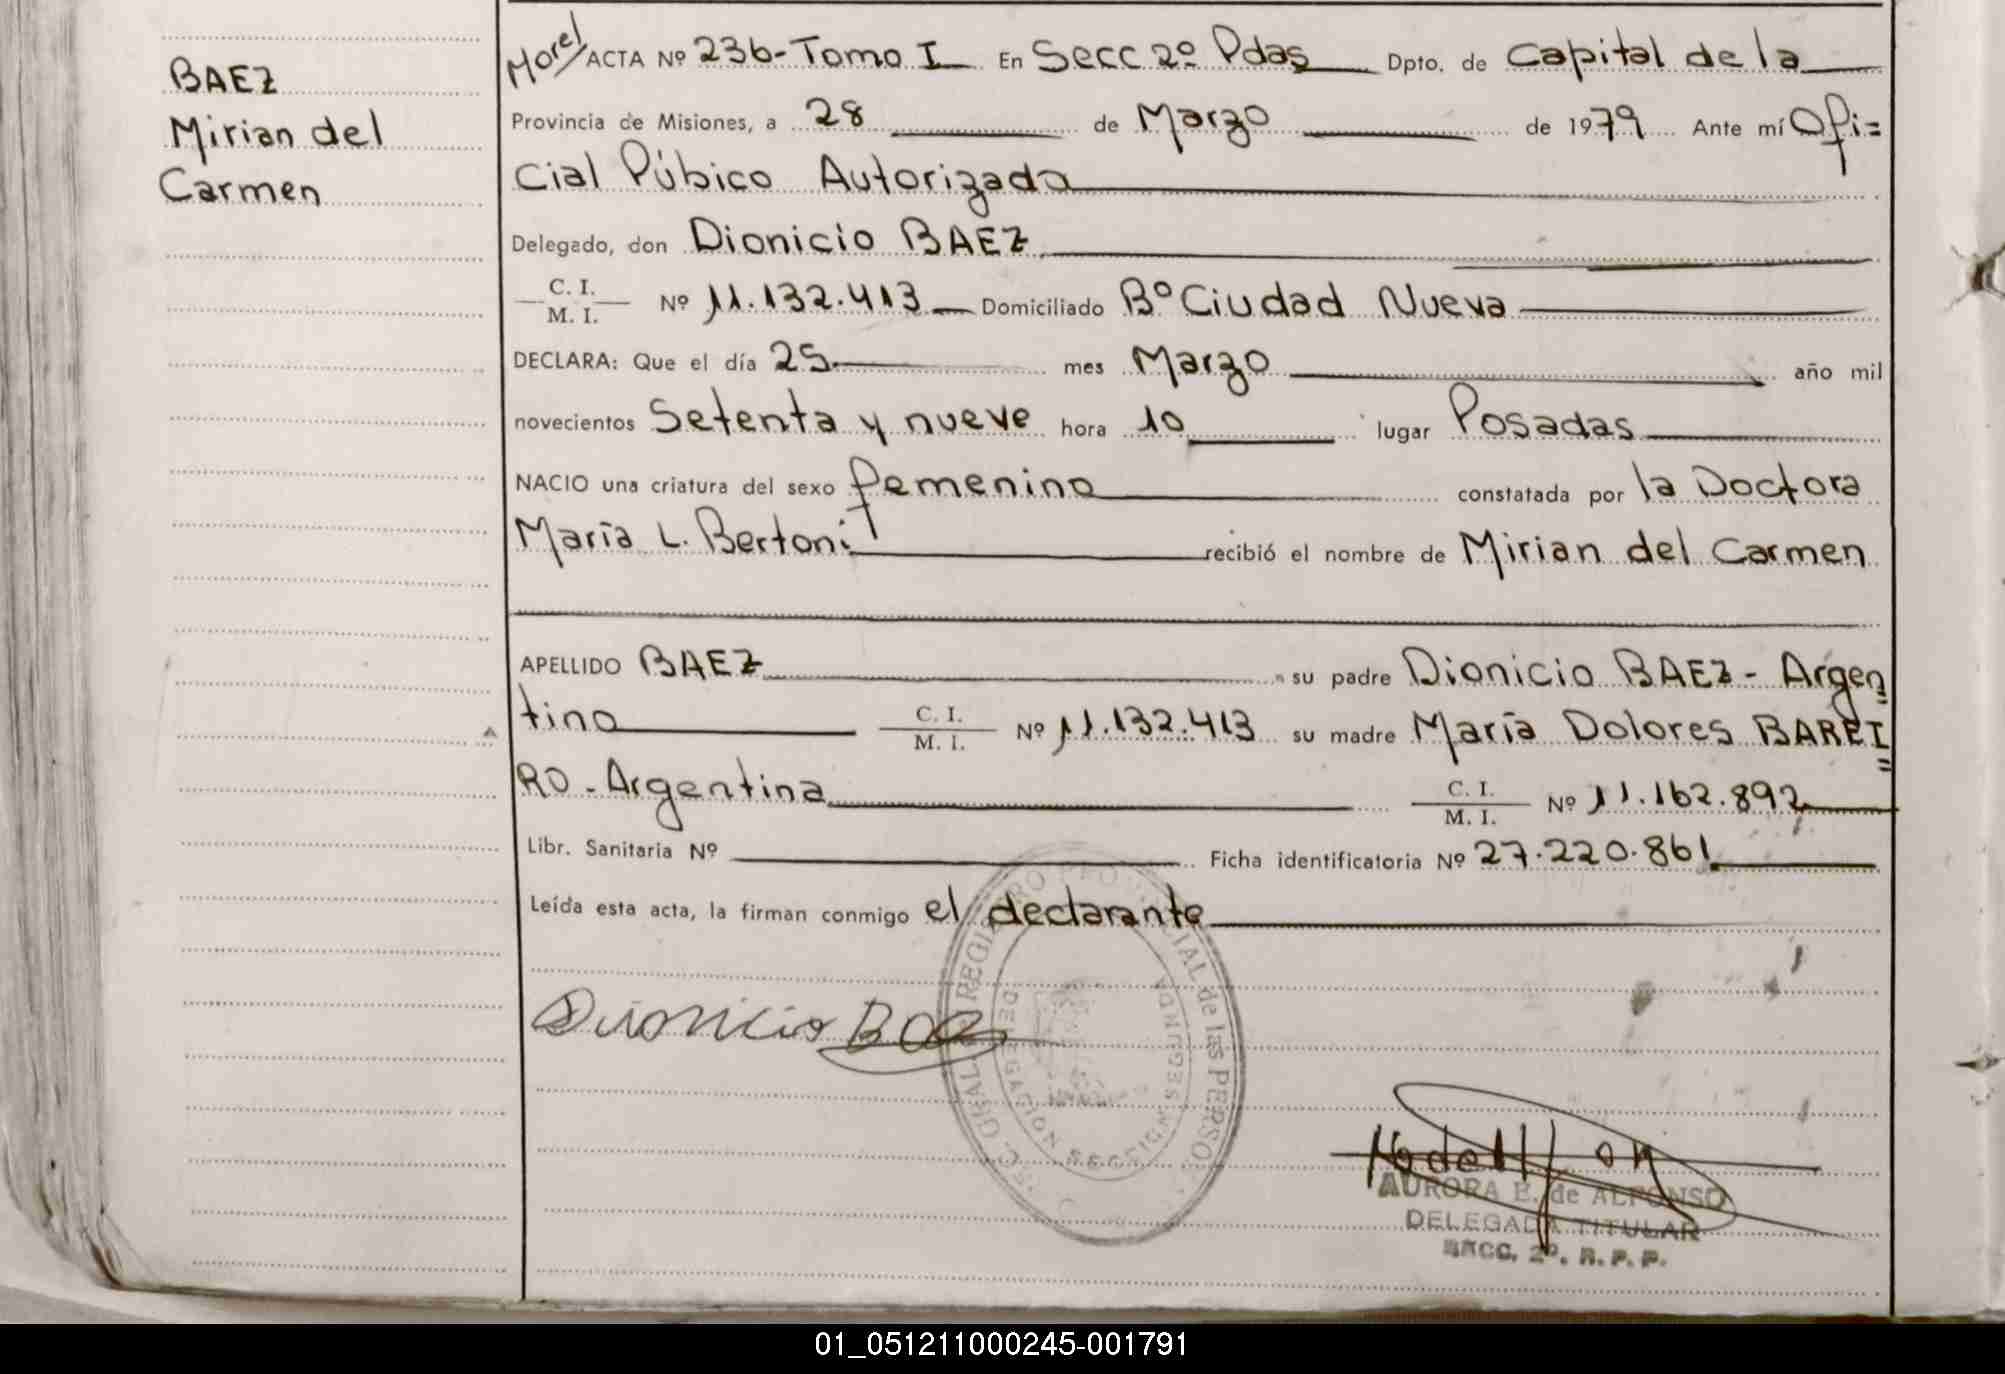 BAEZ
Mirian del
Carmen
Morel ACTA Nº 236-Tomo I En Secc 2º Pdas Dpto. de Capital de la
Provincia de Misiones, a 28 de Marzo de 1979 Ante mí Ofi=
cial Púbico Autorizada
Delegado, don Dionicio BAEZ
C. I.
M. I. Nº 11.132.413 Domiciliado Bº Ciudad Nueva
DECLARA: Que el día 25 mes Marzo año mil
novecientos Setenta y nueve hora 10 lugar Posadas
NACIO una criatura del sexo femenino constatada por la Doctora
María L. Bertoni recibió el nombre de Mirian del Carmen
APELLIDO BAEZ su padre Dionicio BAEZ - Argen=
tino C. I. M. I. Nº 11.132.413 su madre María Dolores BAREI=
RO - Argentina C. I. M. I. Nº 11.162.892
Libr. Sanitaria Nº Ficha identificatoria Nº 27.220.861
Leída esta acta, la firman conmigo el declarante
REGISTRO PROVINCIAL de las PERSO
DELEGACION SECCION SEGUNDA
Dionicio Baez
AURORA E. de ALFONSO
DELEGADA TITULAR
SECC. 2º. R. P. P.
01_051211000245-001791